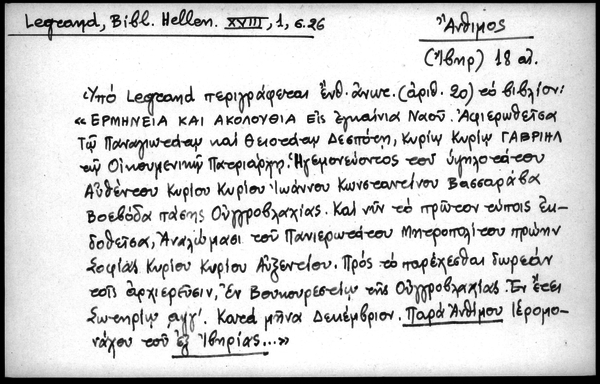 Legrand, Bibl. Hellen. XVIII, 1, σ.26
Ἄνθιμος
(Ἴβηρ) 18 αἰ.
Ὑπό Legrand περιγράφεται ἔνθ. ἀνωτ. (ἀριθ. 20) τό βιβλίον:
« ΕΡΜΗΝΕΙΑ ΚΑΙ ΑΚΟΛΟΥΘΙΑ Εἰς ἐγκαίνια Ναοῦ. Ἀφιερωθεῖσα
Τῷ Παναγιωτάτῳ καί Θειοτάτῳ Δεσπότῃ, Κυρίῳ Κυρίῳ ΓΑΒΡΙΗΛ
τῷ Οἰκουμενικῷ Πατριάρχῃ. Ἡγεμονεύοντος τοῦ ὑψηλοτάτου
Αὐθέντου Κυρίου Κυρίου Ἰωάννου Κωνσταντίνου Βασσαράβα
Βοεβόδα πάσης Οὑγγροβλαχίας. Καί νῦν τό πρῶτον τύποις ἐκ-
δοθεῖσα, Ἀναλώμασι τοῦ Πανιερωτάτου Μητροπολίτου πρώην
Σοφίας Κυρίου Κυρίου Αὐξεντίου. Πρός τό παρέχεσθαι δωρεάν
τοῖς ἀρχιερεῦσιν, Ἐν Βουκουρεστίῳ τῆς Οὑγγροβλαχίας. Ἐν ἔτει
Σωτηρίῳ αχϟζ'. Κατά μῆνα Δεκέμβριον. Παρά Ἀνθίμου Ἱερομο-
νάχου τοῦ ἐξ Ἰβηρίας...»